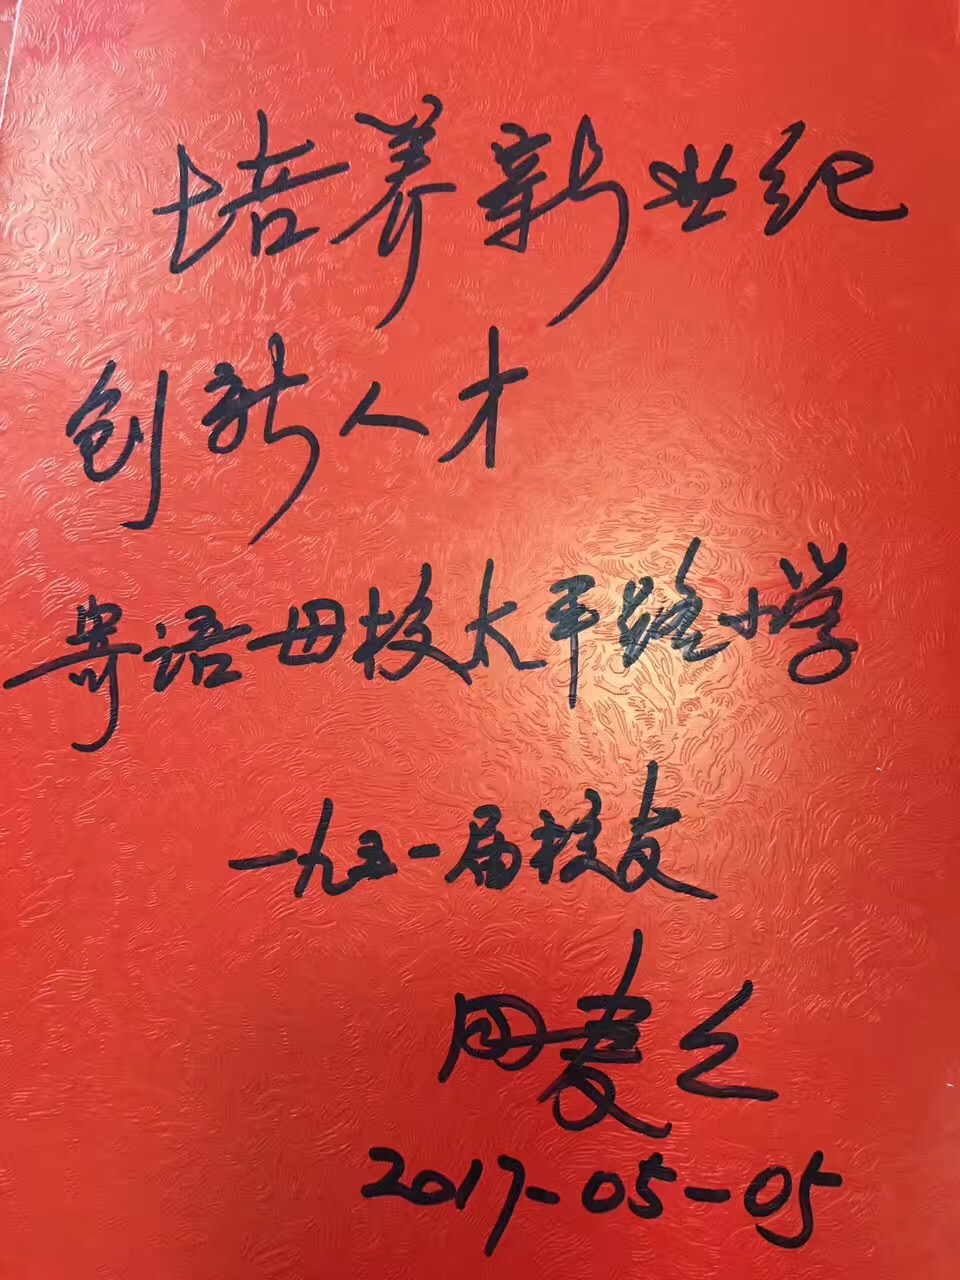 培养新世纪
创新人才
寄语母校太平路小学
一九五一届校友
周之
2017-05-05